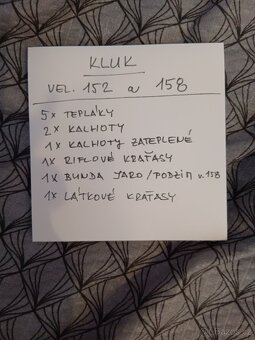 KLUK
VEL. 152 a 158
5x TEPLÁKY
2x KALHOTY
1x KALHOTY ZATEPLENÉ
1x RIFLOVÉ KRAŤASY
1x BUNDA JARO/PODZIM v.158
1x LÁTKOVÉ KRAŤASY